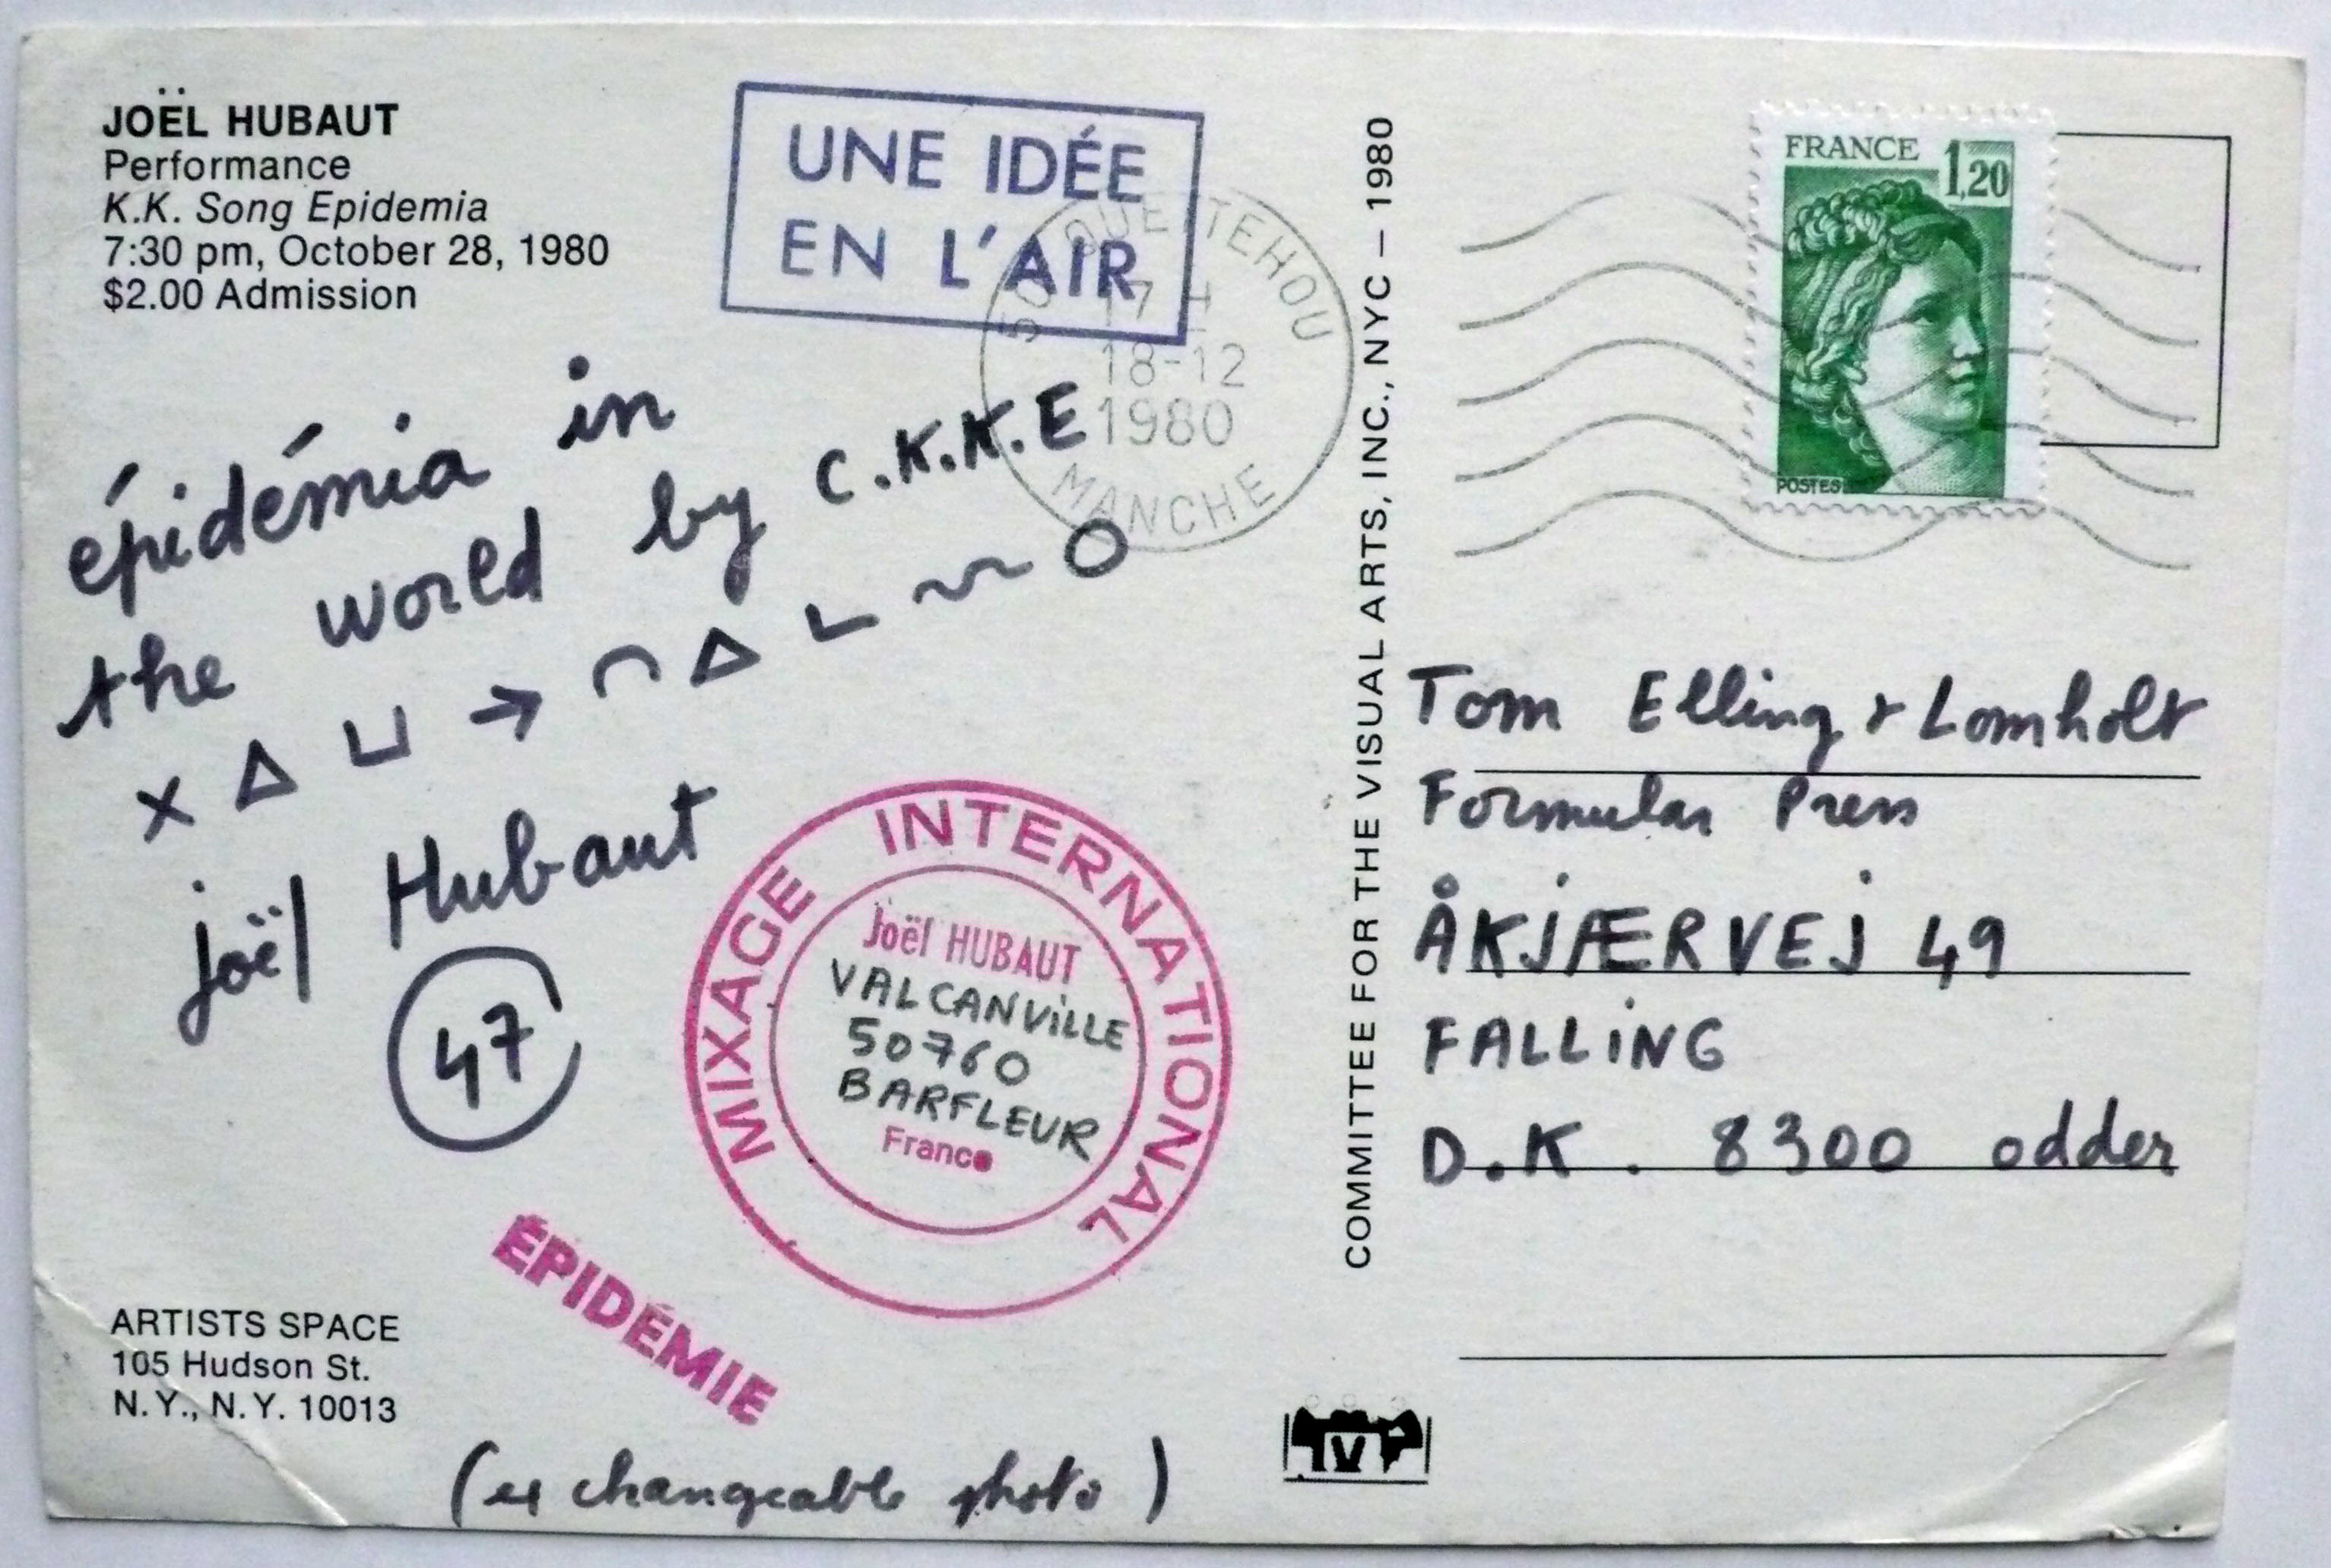 JOËL HUBAUT
Performance
K.K. Song Epidemia
7:30 pm, October 28, 1980
$2.00 Admission
UNE IDÉE
EN L'AIR
50 QUETTEHOU
17 H
18-12
1980
MANCHE
épidémia in
the world by C.K.K.E
joël Hubaut
47
MIXAGE INTERNATIONAL
Joël HUBAUT
VALCANViLLE
50760
BARFLEUR
France
ÉPIDÉMIE
ARTISTS SPACE
105 Hudson St.
N.Y., N.Y. 10013
(exchangeable photo)
COMMITTEE FOR THE VISUAL ARTS, INC., NYC – 1980
FRANCE 1,20
POSTES
Tom Elling & Lomholt
Formular Press
ÅKJÆRVEJ 49
FALLiNG
D.K. 8300 odder